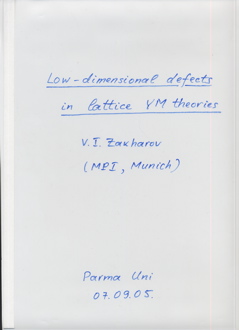 Low-dimensional defects
in lattice YM theories
V.I. Zakharov
(MPI, Munich)
Parma Uni
07.09.05.